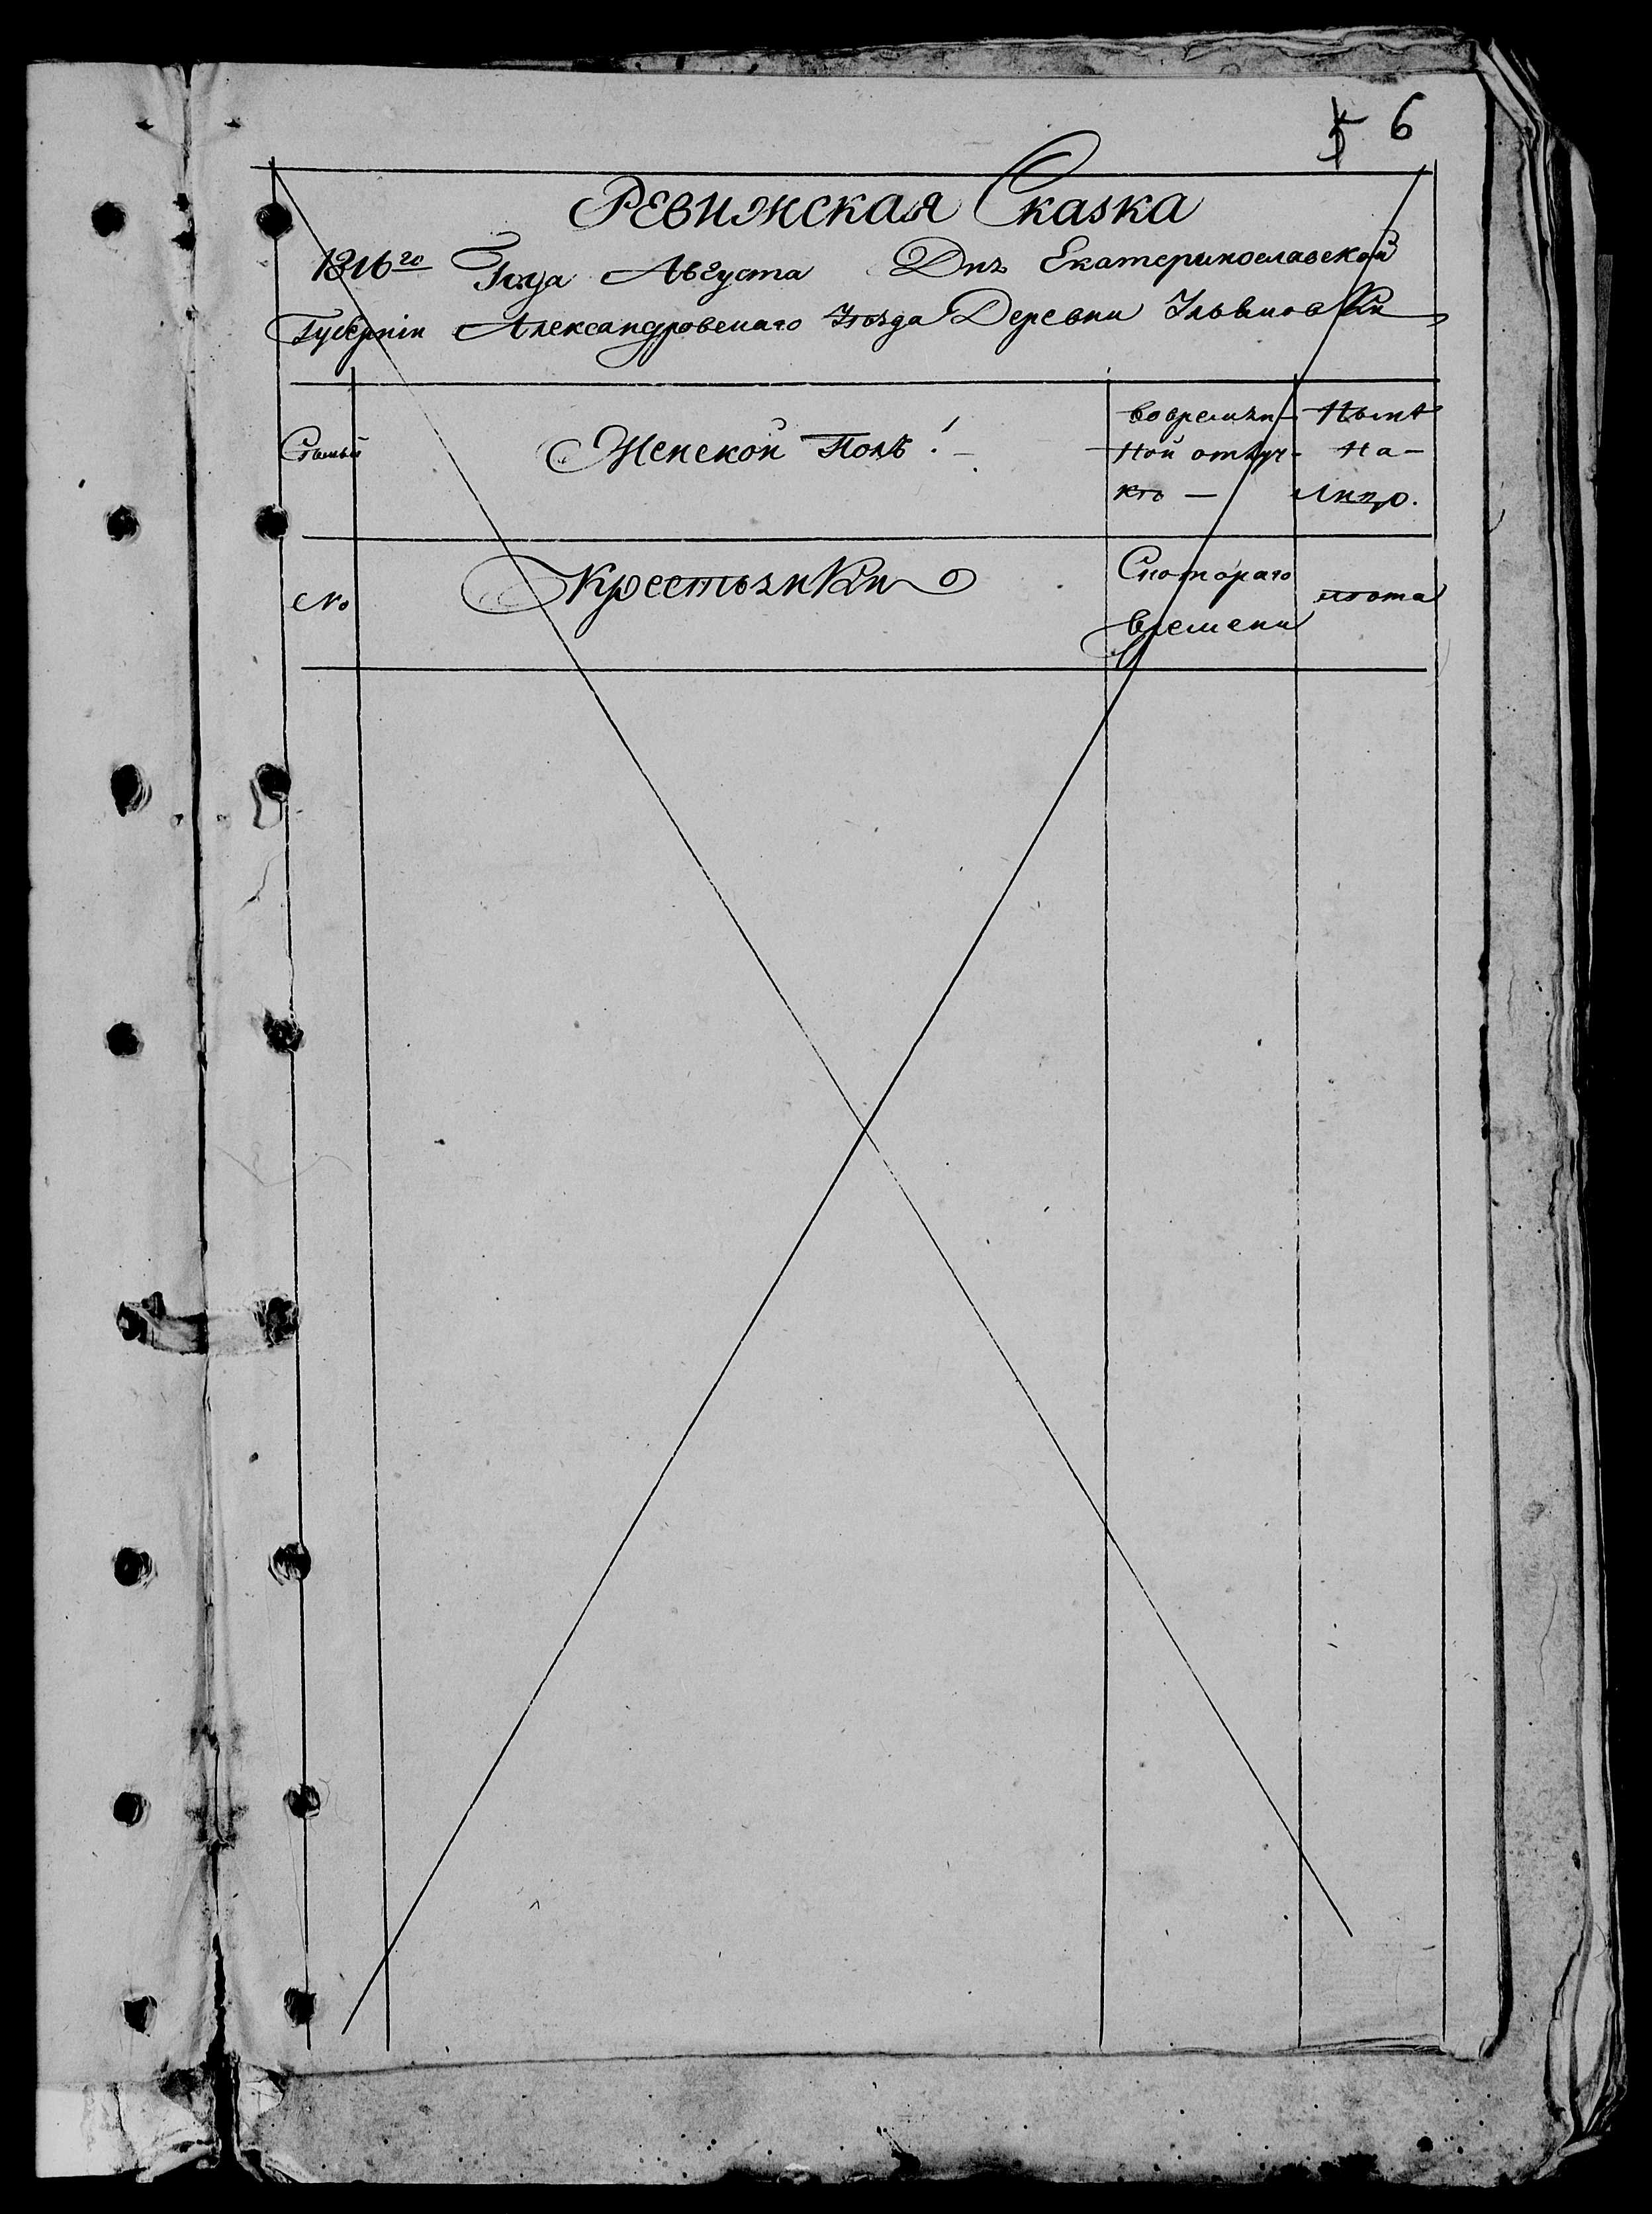 5 6
Ревижская Сказка
1816го Года Августа Дня Екатеринославской
Губерніи Александровскаго Уѣзда Деревни Ильиновки
Семьи
Женской Полъ.
Во времян-
ной отлуч-
кѣ —
Нынѣ
на-
лицо.
№
Крестьянки
Скотораго
времени
лѣта